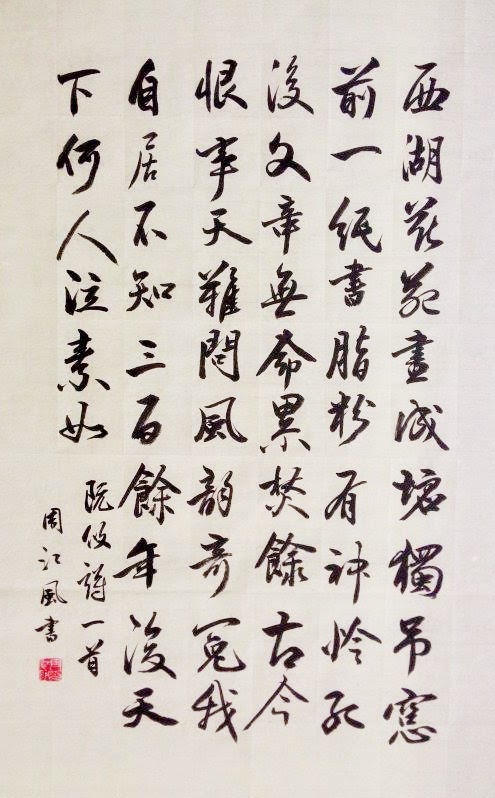 西湖花苑盡成墟獨吊窓
前一紙書脂粉有神怜死
後文章無命累焚餘古今
恨事天難問風韵奇冤我
自居不知三百餘年後天
下何人泣素如
阮攸詩一首
周江風書